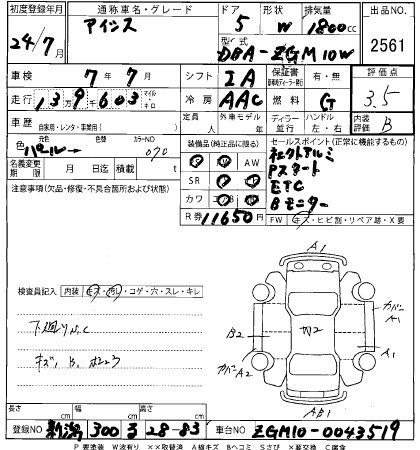 初度登録年月 通称車名・グレード ドア 形状 排気量 出品NO.
24/7月 アイシス 5 W 1800cc 2561
型式 DBA-ZGM10W
車検 7年7月 シフト IA 保証書 有・無 評価点
走行 139千603 マイル・キロ 冷房 AAC 燃料 G 3.5
車歴 自家用・レンタ・事業用( ) 定員 人 外車モデル 年 ディーラー 並行 ハンドル 左・右 内装評価 B
色 元色 パール 色替 カラーNO 070
装備品(純正品に限る) セールスポイント(正常に機能するもの)
名義変更期限 月 日迄 積載 t
AW
Pスタート
SR
ETC
カワ
Bモニター
注意事項(欠品・修復・不具合箇所および状態)
R券 11650円 FW キズ・ヒビ割・リペア跡・X要
A1
検査員記入 内装 キズ・汚れ・コゲ・穴・スレ・キレ
カバンA1
下廻りS.C
B2 A1
キズ、B、ホコ3
カバンA2
AB1
長さ cm 幅 cm 高さ cm
登録NO 新潟 300 る 28-83 車台NO ZGM10-0043519
P 要塗装 W波有り ××取替済 A線キズ Bヘコミ Sさび ×要交換 C腐食